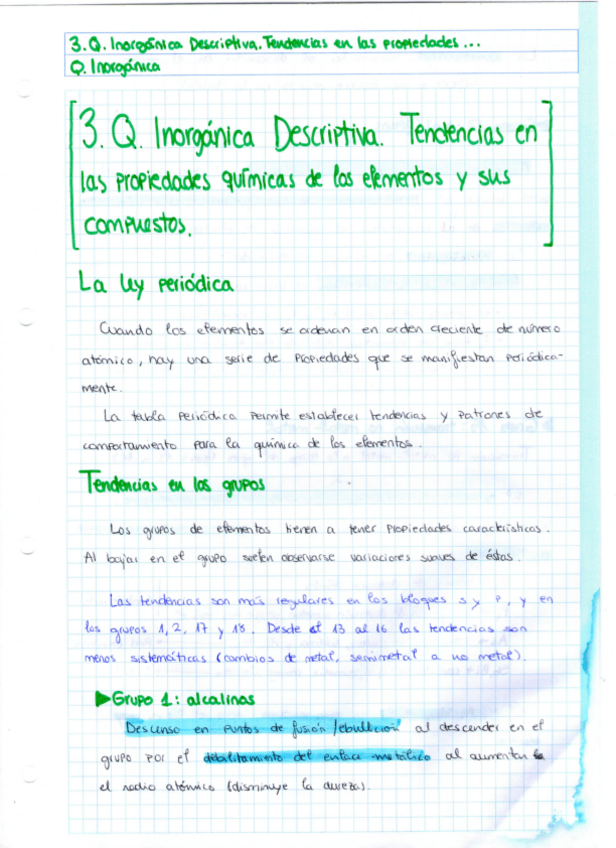 3. Q. Inorgánica Descriptiva. Tendencias en las propiedades ...
Q. Inorgánica
3. Q. Inorgánica Descriptiva. Tendencias en
las propiedades químicas de los elementos y sus
compuestos.
La ley periódica
Cuando los elementos se ordenan en orden creciente de número
atómico, hay una serie de propiedades que se manifiestan periódica-
mente.
La tabla periódica permite establecer tendencias y patrones de
comportamiento para la química de los elementos.
Tendencias en los grupos
Los grupos de elementos tienen a tener propiedades características.
Al bajar en el grupo suelen observarse variaciones suaves de éstas.
Las tendencias son más regulares en los bloques s y p, y en
los grupos 1, 2, 17 y 18. Desde el 13 al 16 las tendencias son
menos sistemáticas (cambios de metal, semimetal a no metal).
▶Grupo 1: alcalinos
Descenso en puntos de fusión/ebullición al descender en el
grupo por el debilitamiento del enlace metálico al aumentar
el radio atómico (disminuye la dureza).